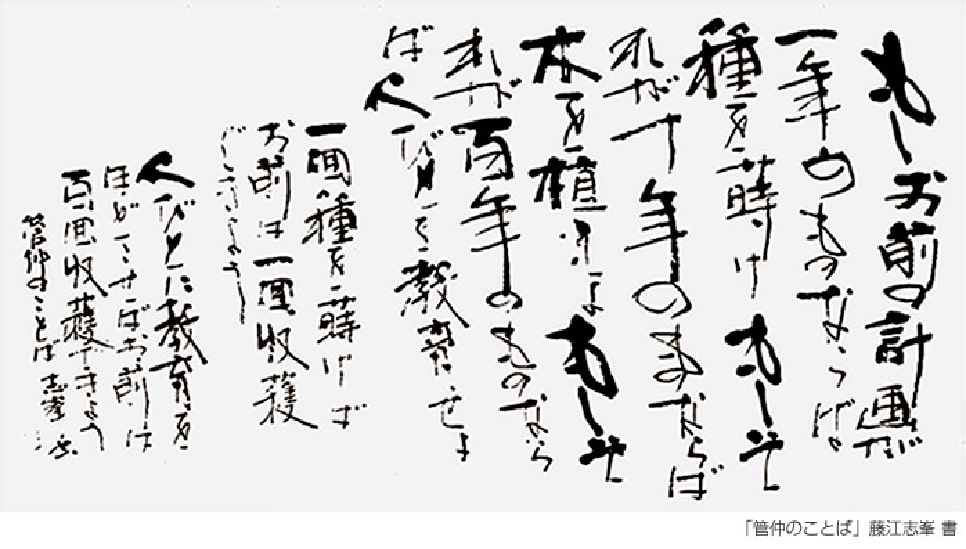 もしお前の計画が
一年のものならば
種を蒔けもしそ
れが十年のものならば
木を植えよもしそ
れが百年のものなら
ば人びとを教育せよ
一回種を蒔けば
お前は一回収穫
できよう
人びとに教育を
ほどこせばお前は
百回収穫できよう
管仲のことば 志峯
「管仲のことば」藤江志峯 書